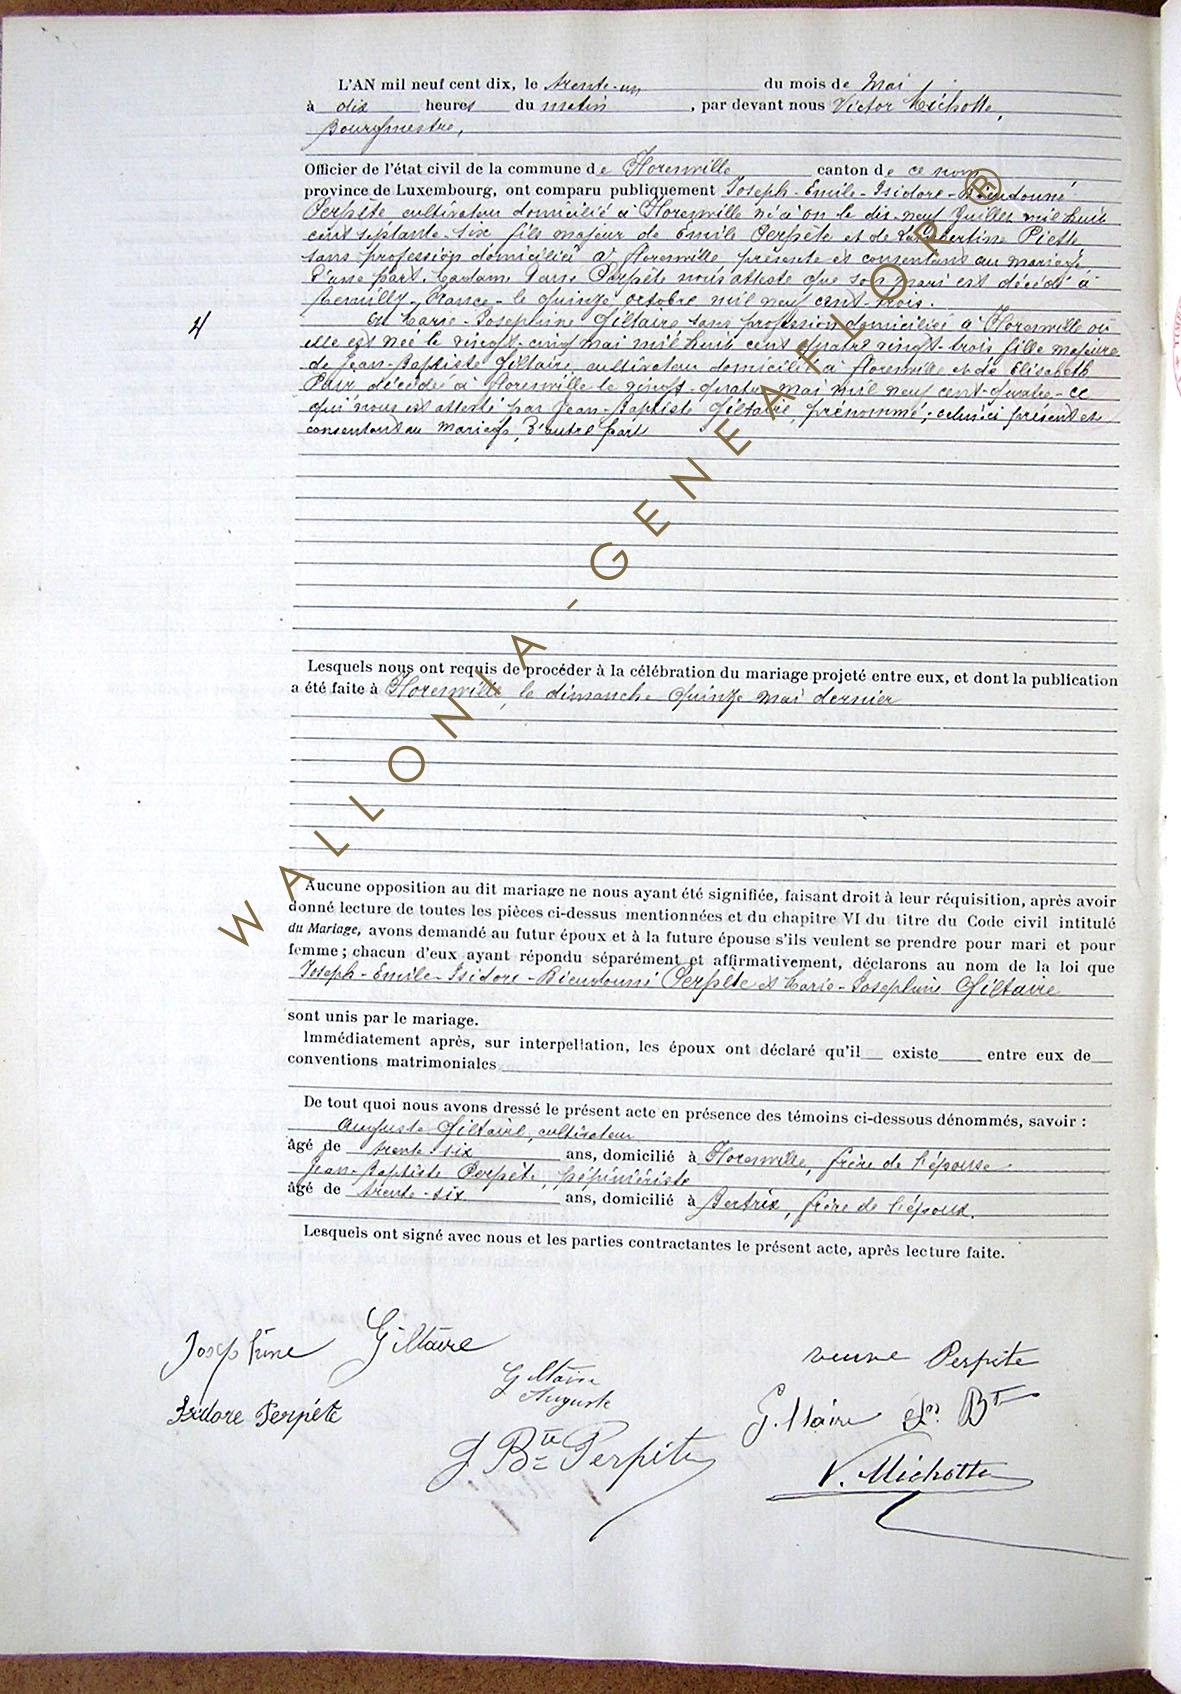 L'AN mil neuf cent dix, le trente-un du mois de Mai
à dix heures du matin, par devant nous Victor Michotte,
Bourgmestre,
Officier de l'état civil de la commune de Florenville canton de ce nom
province de Luxembourg, ont comparu publiquement Joseph-Emile-Isidore-Dieudonné
Perpête cultivateur domicilié à Florenville né à le dix-neuf Juillet mil huit
cent septante-six fils majeur de Emile Perpête et de Lambertine Piette
sans profession domiciliée à Florenville présente et consentant au mariage,
d'une part. Madame Veuve Perpête nous atteste que son mari est décédé à
France le quinze octobre mil neuf cent-trois.
4
Et Marie-Josephine Giltaire sans profession domiciliée à Florenville où
elle est née le vingt-cinq mai mil huit cent quatre vingt-trois fille majeure
de Jean-Baptiste Giltaire, cultivateur domicilié à Florenville et de Elisabeth
décédée à Florenville le vingt-quatre mai mil neuf cent-quatre-ce
qui nous est attesté par Jean-Baptiste Giltaire, prénommé; celui-ci présent et
consentant au mariage, d'autre part
Lesquels nous ont requis de procéder à la célébration du mariage projeté entre eux, et dont la publication
a été faite à Florenville, le dimanche quinze mai dernier
Aucune opposition au dit mariage ne nous ayant été signifiée, faisant droit à leur réquisition, après avoir
donné lecture de toutes les pièces ci-dessus mentionnées et du chapitre VI du titre du Code civil intitulé
du Mariage, avons demandé au futur époux et à la future épouse s'ils veulent se prendre pour mari et pour
femme ; chacun d'eux ayant répondu séparément et affirmativement, déclarons au nom de la loi que
Joseph-Emile-Isidore-Dieudonné Perpête et Marie-Josephine Giltaire
sont unis par le mariage.
Immédiatement après, sur interpellation, les époux ont déclaré qu'il existe entre eux de
conventions matrimoniales
De tout quoi nous avons dressé le présent acte en présence des témoins ci-dessous dénommés, savoir :
Auguste Giltaire, cultivateur
âgé de trente-six ans, domicilié à Florenville, frère de l'épouse
Jean-Baptiste Perpête, pépiniériste
âgé de trente-six ans, domicilié à Bertrix, frère de l'époux.
Lesquels ont signé avec nous et les parties contractantes le présent acte, après lecture faite.
Josephine Giltaire
veuve Perpête
Giltaire
Auguste
Isidore Perpête
Giltaire Jn Bte
J Bte Perpête
V. Michotte
WALLONIA-GENEAFLOR®